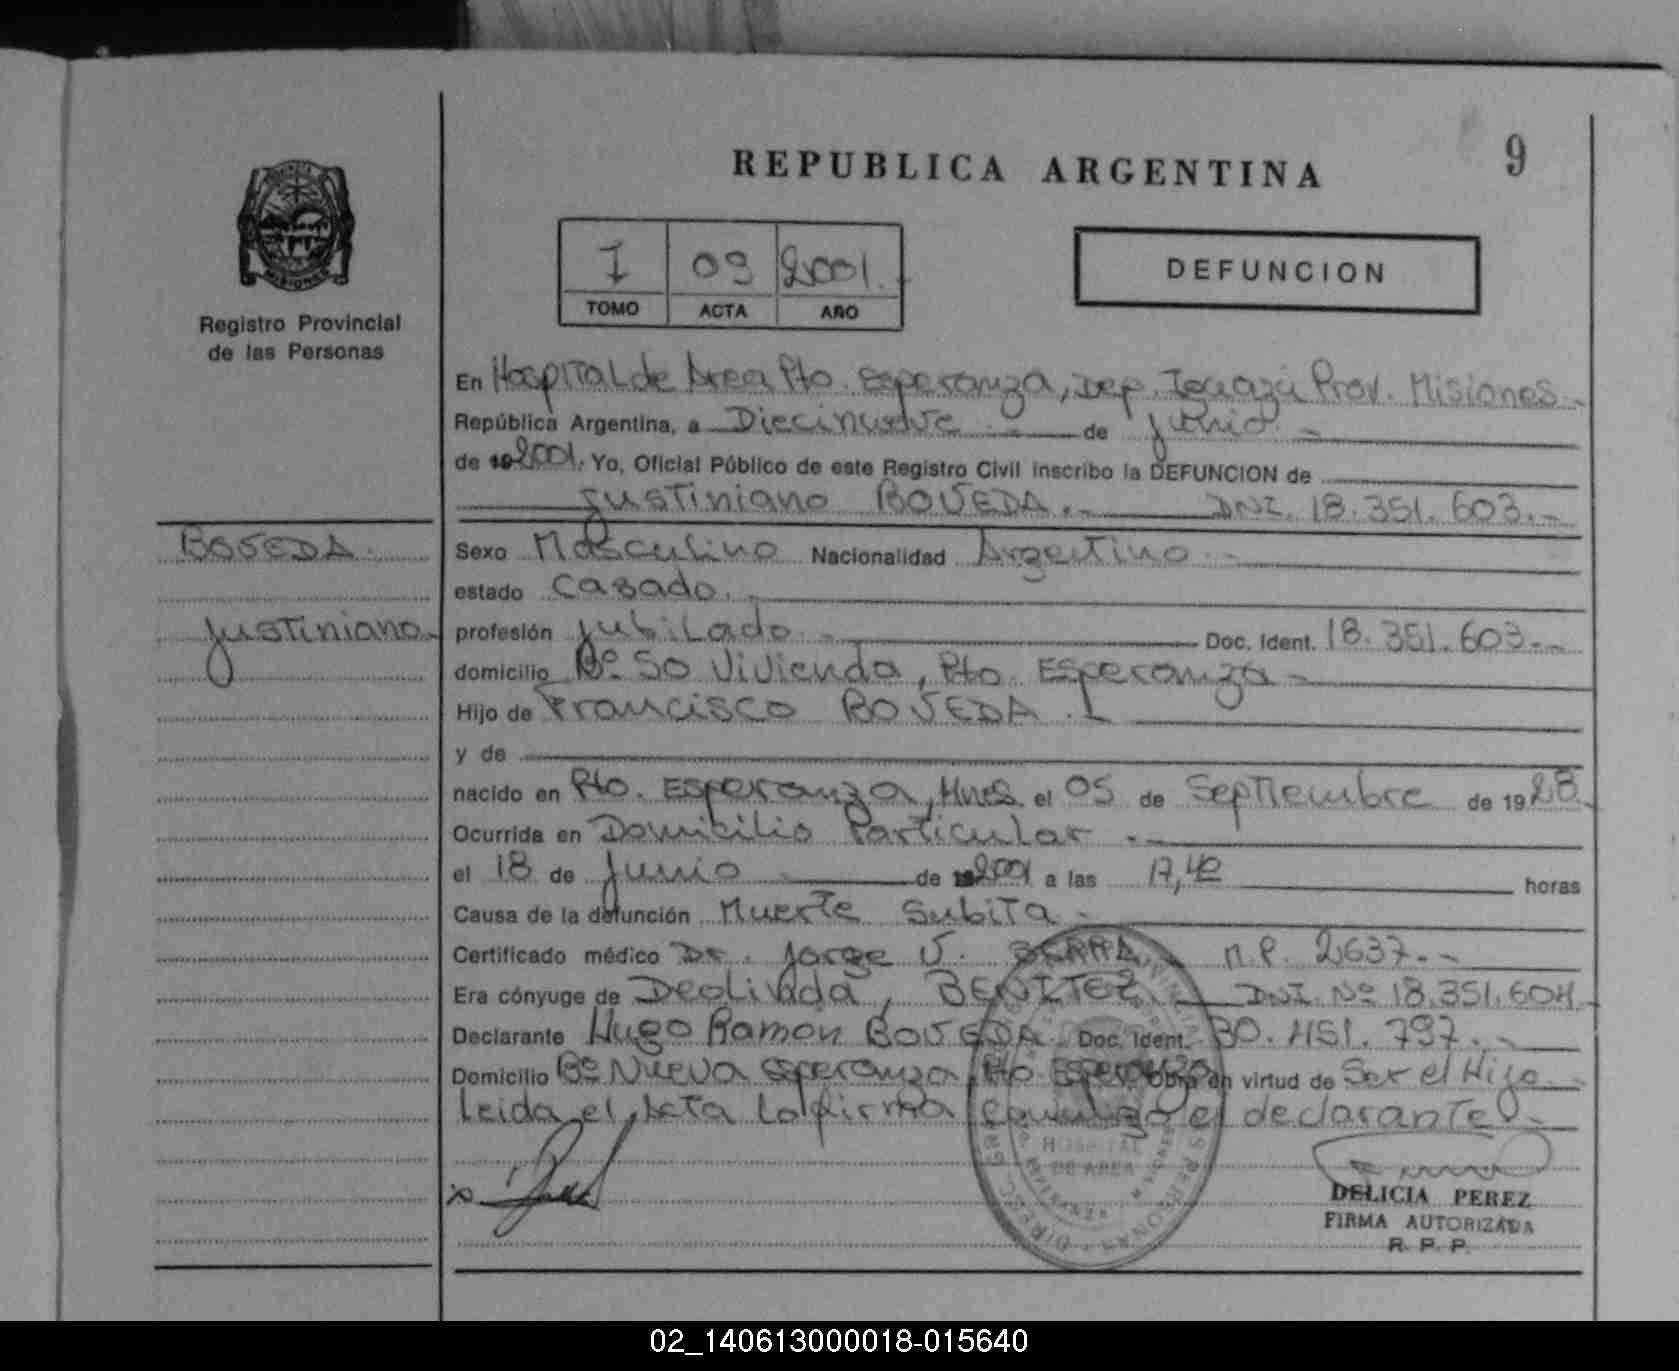 REPUBLICA ARGENTINA
9
Registro Provincial
de las Personas
I 09 2001.
TOMO ACTA AÑO
DEFUNCION
En Hospital de Area Pto. Esperanza, Dep. Iguazú Prov. Misiones.-
República Argentina, a Diecinueve.- de junio.-
de 19 2001. Yo, Oficial Público de este Registro Civil inscribo la DEFUNCION de
justiniano BOVEDA.- DNI. 18.351.603.-
BOVEDA.
justiniano.
Sexo Masculino Nacionalidad Argentino.-
estado Casado.-
profesión jubilado.- Doc. Ident. 18.351.603.-
domicilio Bº 50 Vivienda, Pto. Esperanza.-
Hijo de Francisco BOVEDA.-
y de
nacido en Pto. Esperanza, Mnes el 05 de Septiembre de 1928.
Ocurrida en Domicilio Particular.-
el 18 de junio de 2001 a las 17,42 horas
Causa de la defunción Muerte Subita.-
Certificado médico Dr. Jorge V. M.P. 2637.-
Era cónyuge de Deolinda, BENITEZ.- DNI. Nº 18.351.604.
Declarante Hugo Ramon BOVEDA. Doc. Ident. 30.451.797.-
Domicilio Bº Nueva Esperanza, Pto Esperanza Obra en virtud de Ser el Hijo.-
Leida el Acta la firma conmigo el declarante.-
HOSPITAL
DE AREA
DELICIA PEREZ
FIRMA AUTORIZADA
R. P. P.
02_140613000018-015640